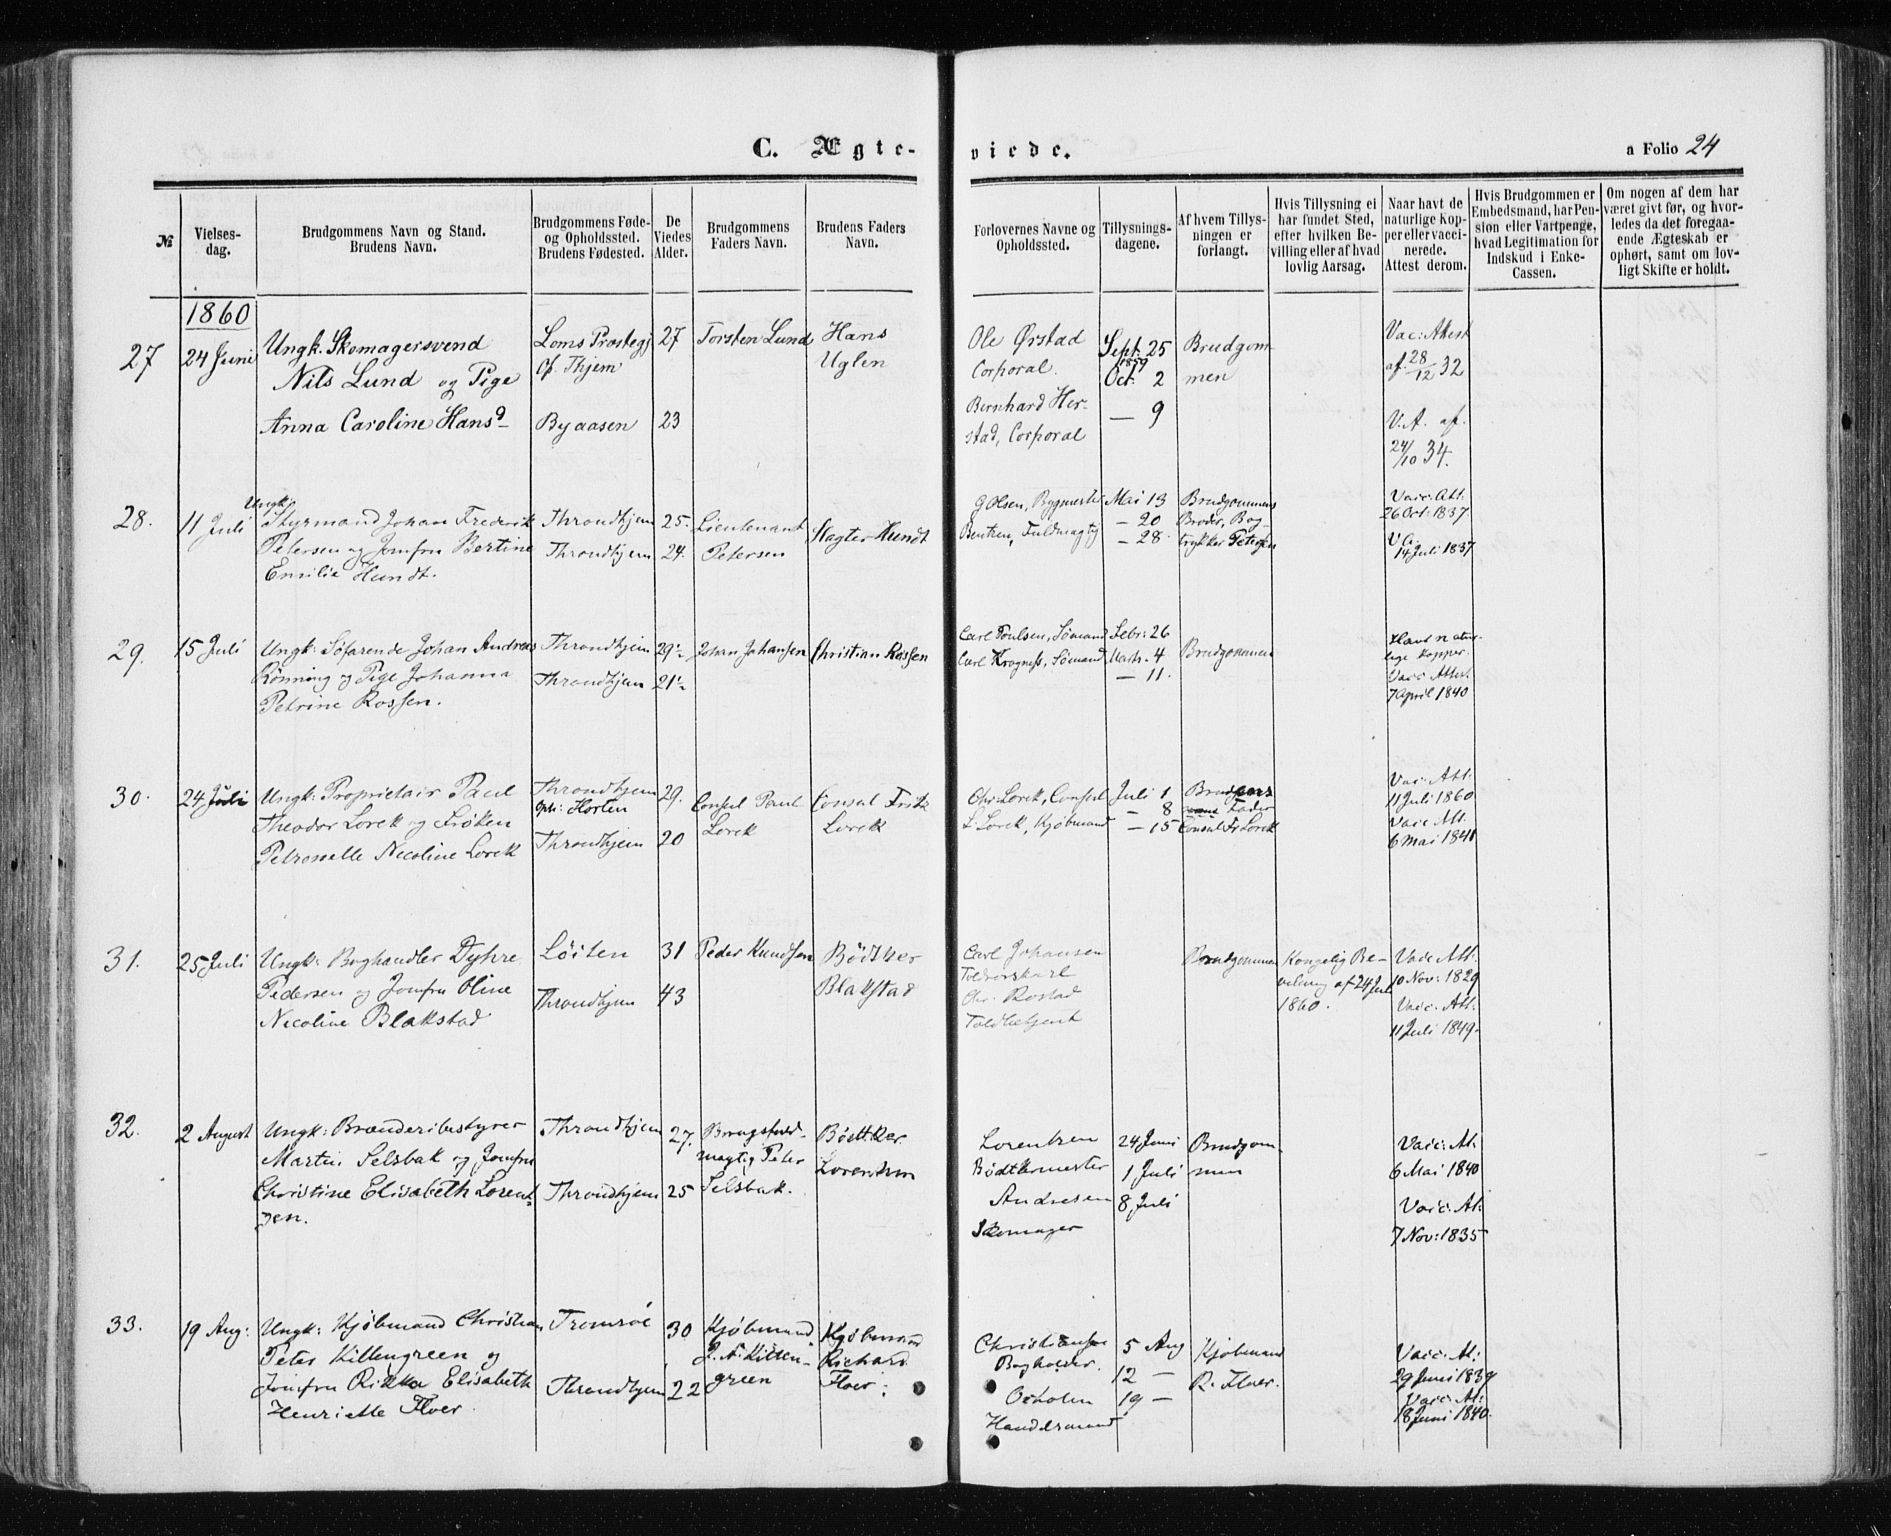 C. Ægte-
viede.
a Folio 24
№
Vielses-
dag.
Brudgommens Navn og Stand.
Brudens Navn.
Brudgommens Føde-
og Opholdssted.
Brudens Fødested.
De
Viedes
Alder.
Brudgommens
Faders Navn.
Brudens Faders
Navn.
Forlovernes Navne og
Opholdssted.
Tillysnings-
dagene.
Af hvem Tillys-
ningen er
forlangt.
Hvis Tillysning ei
har fundet Sted,
efter hvilken Be-
villing eller af hvad
lovlig Aarsag.
Naar havt de
naturlige Kop-
per eller vacci-
nerede.
Attest derom.
Hvis Brudgommen er
Embedsmand, har Pen-
sion eller Vartpenge,
hvad Legitimation for
Indskud i Enke-
Cassen.
Om nogen af dem har
været givt før, og hvor-
ledes da det foregaa-
ende Ægteskab er
ophørt, samt om lov-
ligt Skifte er holdt.
1860
27
24 Juni
Ungk. Skomagersvend
Nils Lund og Pige
Anna Caroline Hansd
Loms Præstegj
Of. Thjem
Byaasen
27
23
Torsten Lund
Hans
Uglen
Ole Ørstad
Corporal.
Bernhard Her-
stad, Corporal
Sept. 25
1859
Oct. 2
— 9
Brudgom-
men
Vac: Attest
af 28/12 32
V. A. af
24/10 34.
28.
11 Juli
Ungk.
Styrmand Johan Frederik
Petersen og Jomfru Bertine
Emilie Hundt.
Throndhjem
Throndhjem
25.
24.
Lieutenant
Petersen
Slagter Hundt
G Olsen, Bygmester
Bentzen, Fuldmægtig
Mai 13
— 20
— 28.
Brudgommens
Broder, Bog-
trykker Petersen
Vacc. Att.
26 Oct. 1837
V A.
14 Juli 1837
29.
15 Juli
Ungk: Søfarende Johan Andreas
Rønning og Pige Johanna
Petrine Rossen.
Throndhjem
Throndhjem
29
21
Johan Johansen
Christian Rossen
Carl Poulsen, Sømand
Carl Kragness, Sømand
Febr: 26
Marts 4
— 11.
Brudgommen
Havt natur-
lige Kopper.
Vacc Attest.
7 April 1840
30.
24 Juli
Ungk: Proprietair Paul
Theodor Lorck og Frøken
Petronelle Nicoline Lorck
Throndhjem
Oph: Horten
Throndhjem
29.
20
Consul Paul
Lorck
Consul Fritz
Lorck
Chr. Lorck, Consul
L. Lorck, Kjøbmand
Juli 1
— 8
— 15
Brudens
Fader
Consul Fr Lorck
Vac: Att.
11 Juli 1860
Vacc Att.
6 Mai 1841
31.
25 Juli
Ungk: Boghandler Dyhre
Pedersen og Jomfru Oline
Nicoline Blakstad
Løiten
Throndhjem
31
43
Peder Knudsen
Bødtker
Blakstad
Carl Johansen
Toldrorskarl
Chr. Rostad
Toldbetjent
Brudgommen
Kongelig Be-
vilning af 24 Juli
1860.
Vacc Att.
10 Nov: 1829
Vacc. Att.
11 Juli 1849.
32.
2 August
Ungk: Brænderibestyrer
Martin Selsbak og Jomfru
Christine Elisabeth Lorent-
zen.
Throndhjem
Throndhjem
27.
25
Brugsfuld-
mægtig Peter
Selsbak.
Bødtker
Lorentzen
Lorentzen
Bødtkermester
Andresen
Skomager
24 Juni
1 Juli
8 Juli
Brudgom-
men
Vacc: At.
6 Mai 1840
Vacc: At.
7 Nov: 1835
33.
19 Aug:
Ungk: Kjøbmand Christian
Peter Killengreen og
Jomfru Rikka Elisabeth
Henriette Floer.
Tromsøe
Throndhjem
30
22
Kjøbmand
J. A. Killen-
green
Kjøbmand
Richard
Floer.
Christensen
Bogholder.
Oxholm
Handelsmand
5 Aug
12 —
19 —
Kjøbmand
R. Floer.
Vacc. At:
29 Juni 1839
Vacc. At:
18 Juni 1840.